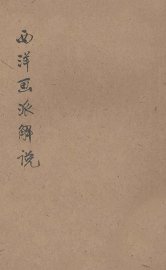 西洋画派解说